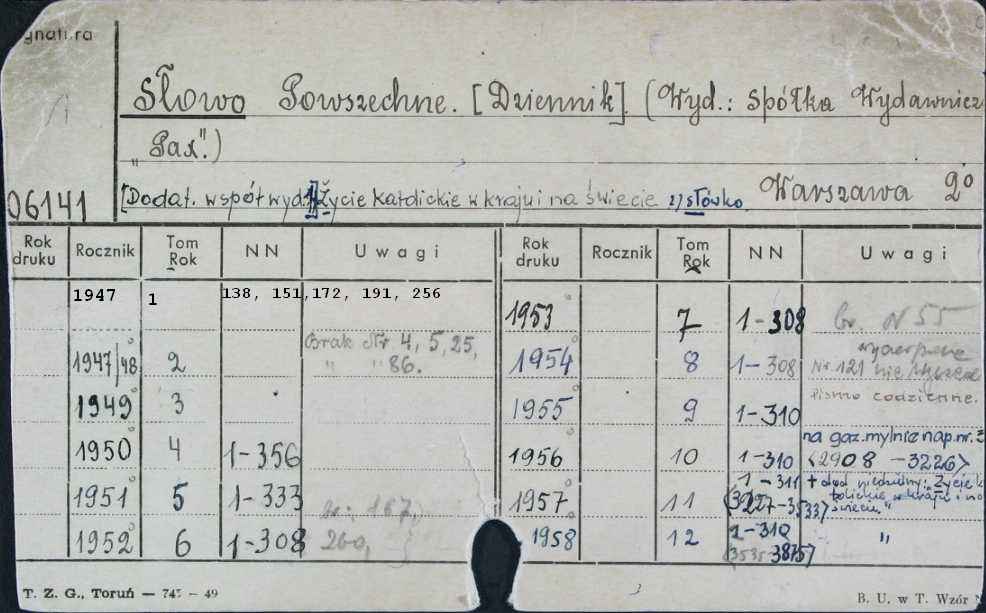 Słowo Powszechne. [Dziennik]. (Wyd.: Spółka Wydawnicz
"Pax".)
06141 [Dodat. współwyd. 1) Życie katolickie w kraju i na świecie 2) słówko Warszawa 2°
Rok druku Rocznik Tom Rok NN Uwagi Rok druku Rocznik Tom Rok NN Uwagi
1947 1 138, 151, 172, 191, 256
1953 7 1-308 Br. N 55
1947/48 2 Brak Nr 4, 5, 25,
" " 86.
1954 8 1-308 Nr 121 nie
1949 3
1955 9 1-310 Pismo codzienne.
1950 4 1-356
1956 10 1-310 na gaz. mylnie nap. nr.
<2908 -3226>
1951 5 1-333 167,
1957 11 1-311 + dod niedzielny: "Życie k
(3227-3533) tolickie w kraju i na
świecie."
1952 6 1-308 260,
1958 12 1-310 "
(3535-3875)
T. Z. G., Toruń — 745 — 49
B. U. w T. Wzór